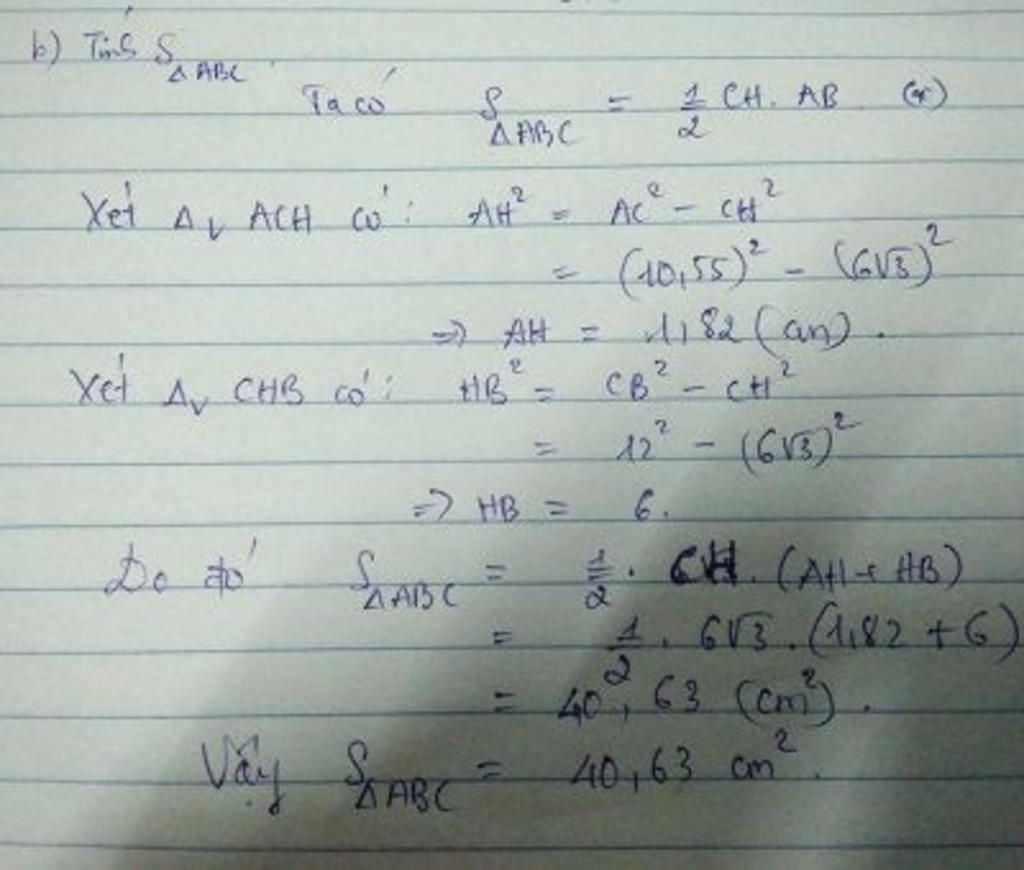 b) Tính S△ABC
Ta có S△ABC = 1/2 CH. AB (*)
Xét △v ACH có: AH² = AC² - CH²
= (10,55)² - (6√3)²
=> AH = 1,82 (cm).
Xét △v CHB có: HB² = CB² - CH²
= 12² - (6√3)²
=> HB = 6.
Do đó S△ABC = 1/2 . CH. (AH + HB)
= 1/2 . 6√3 . (1,82 + 6)
= 40,63 (cm²).
Vậy S△ABC = 40,63 cm².